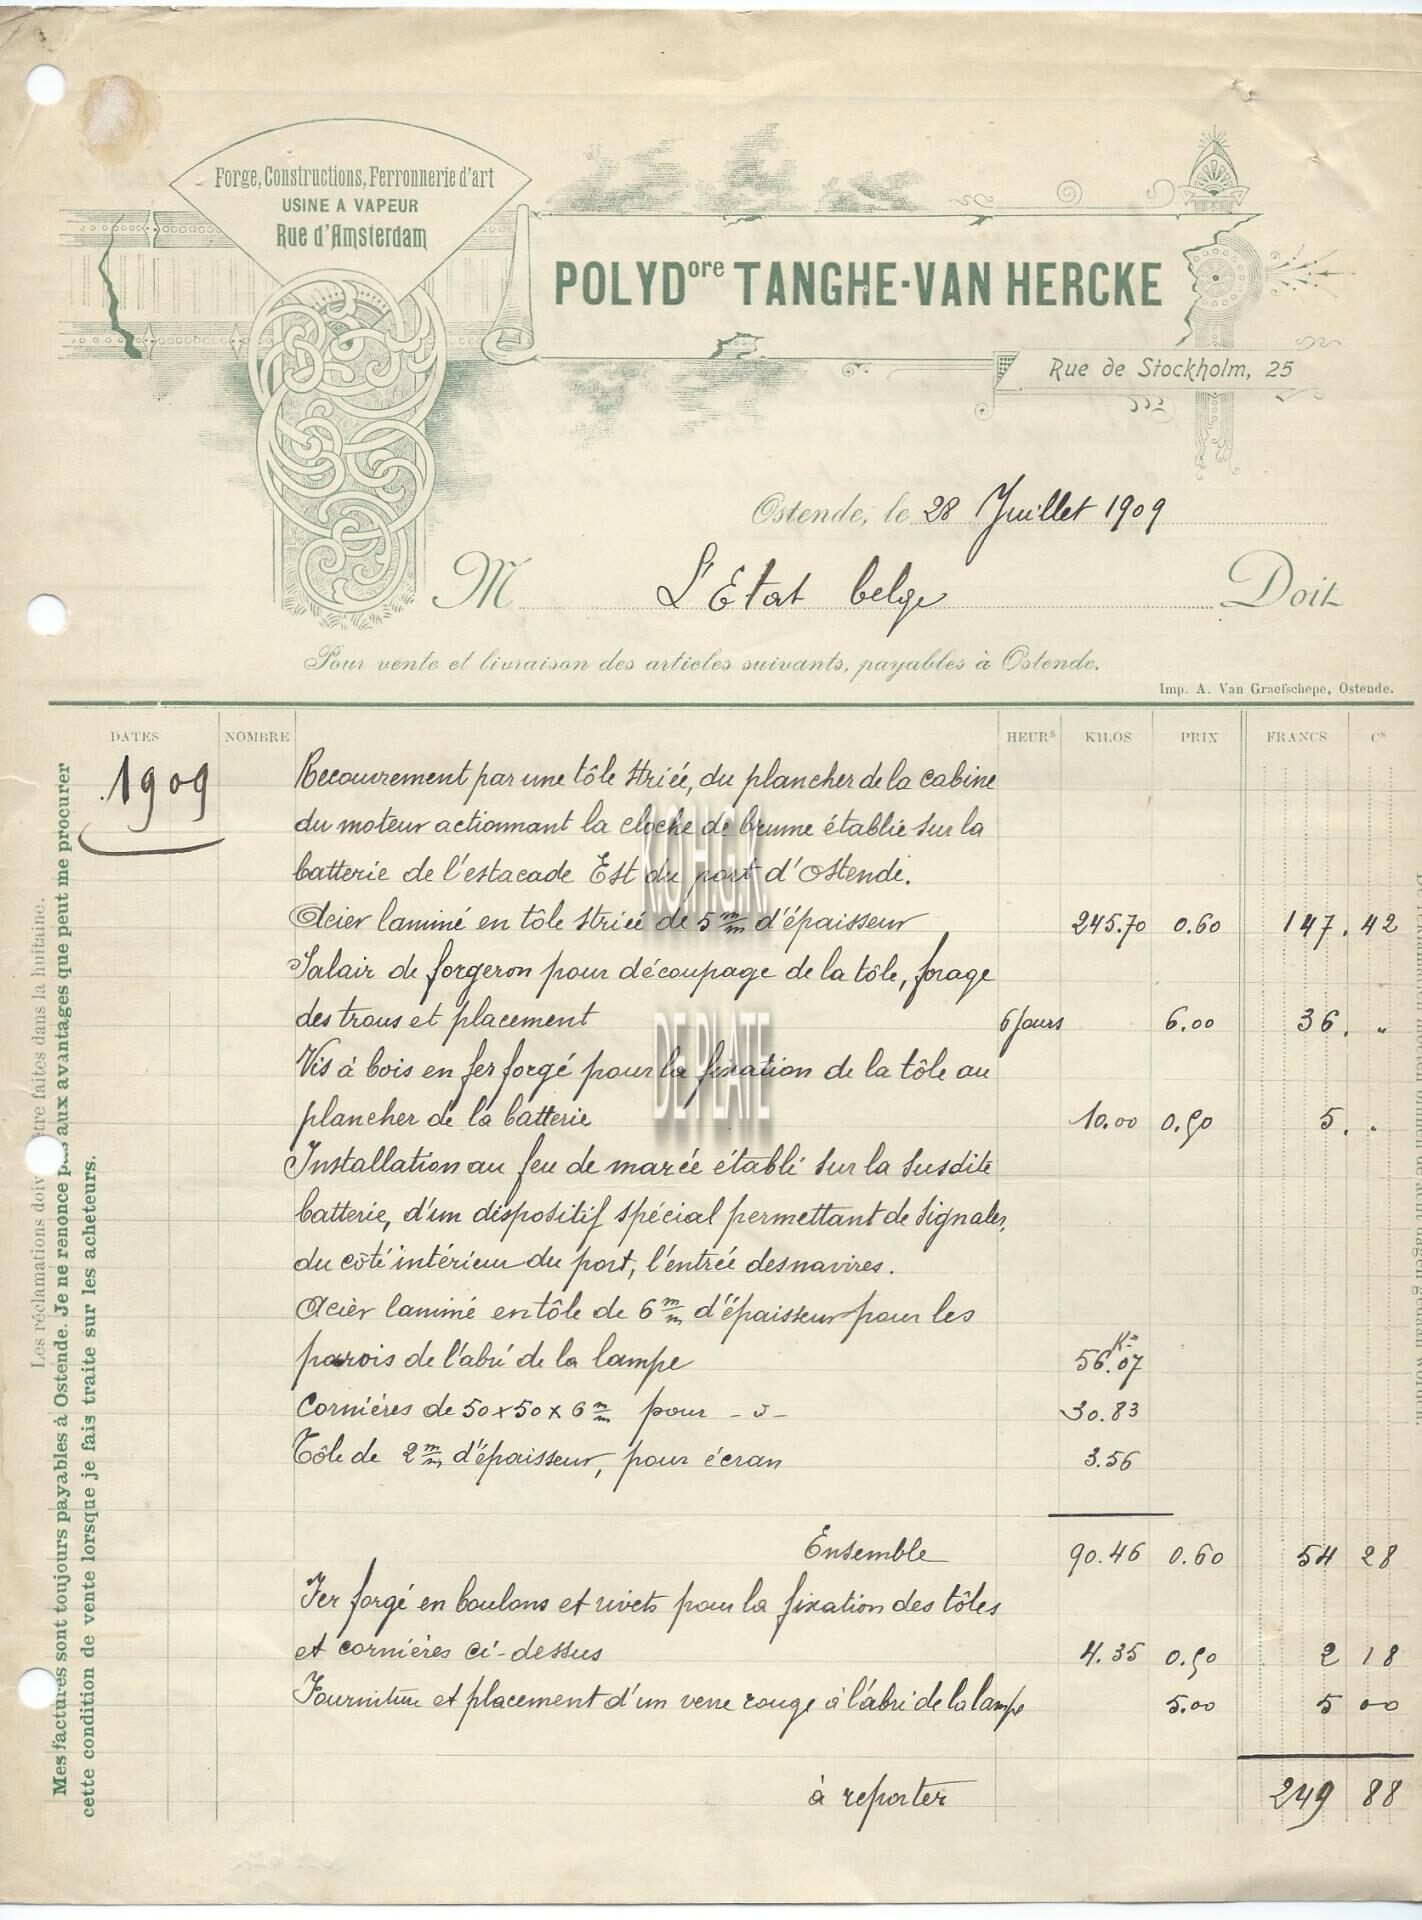 Forge, Constructions, Ferronnerie d'art
USINE A VAPEUR
Rue d'Amsterdam
POLYDore TANGHE-VAN HERCKE
Rue de Stockholm, 25
Ostende, le 28 Juillet 1909
M L'Etat belge Doit
Pour vente et livraison des articles suivants, payables à Ostende.
Imp. A. Van Graefschepe, Ostende.
DATES NOMBRE HEURs KILOS PRIX FRANCS Cs
1909
Recouvrement par une tôle striée, du plancher de la cabine
du moteur actionnant la cloche de brume établie sur la
batterie de l'estacade Est du port d'Ostende.
Acier laminé en tôle striée de 5 m/m d'épaisseur 245.70 0.60 147.42
Salair de forgeron pour découpage de la tôle, forage
des trous et placement 6 jours 6.00 36. "
Vis à bois en fer forgé pour la fixation de la tôle au
plancher de la batterie 10.00 0.50 5. "
Installation au feu de marée établi sur la susdite
batterie, d'un dispositif spécial permettant de signaler,
du côté intérieur du port, l'entrée des navires.
Acier laminé en tôle de 6 m/m d'épaisseur pour les
parois de l'abri de la lampe 56.07 Ks
Cornières de 50 x 50 x 6 m/m pour -d- 30.83
Tôle de 2 m/m d'épaisseur, pour écran 3.56
Ensemble 90.46 0.60 54 28
Fer forgé en boulons et rivets pour la fixation des tôles
et cornières ci-dessus 4.35 0.50 2 18
Fourniture et placement d'un verre rouge à l'abri de la lampe 5.00 5 00
à reporter 249 88
Les réclamations doiv être faites dans la huitaine.
Mes factures sont toujours payables à Ostende. Je ne renonce pas aux avantages que peut me procurer
cette condition de vente lorsque je fais traite sur les acheteurs.
KOHGK
DE PLATE